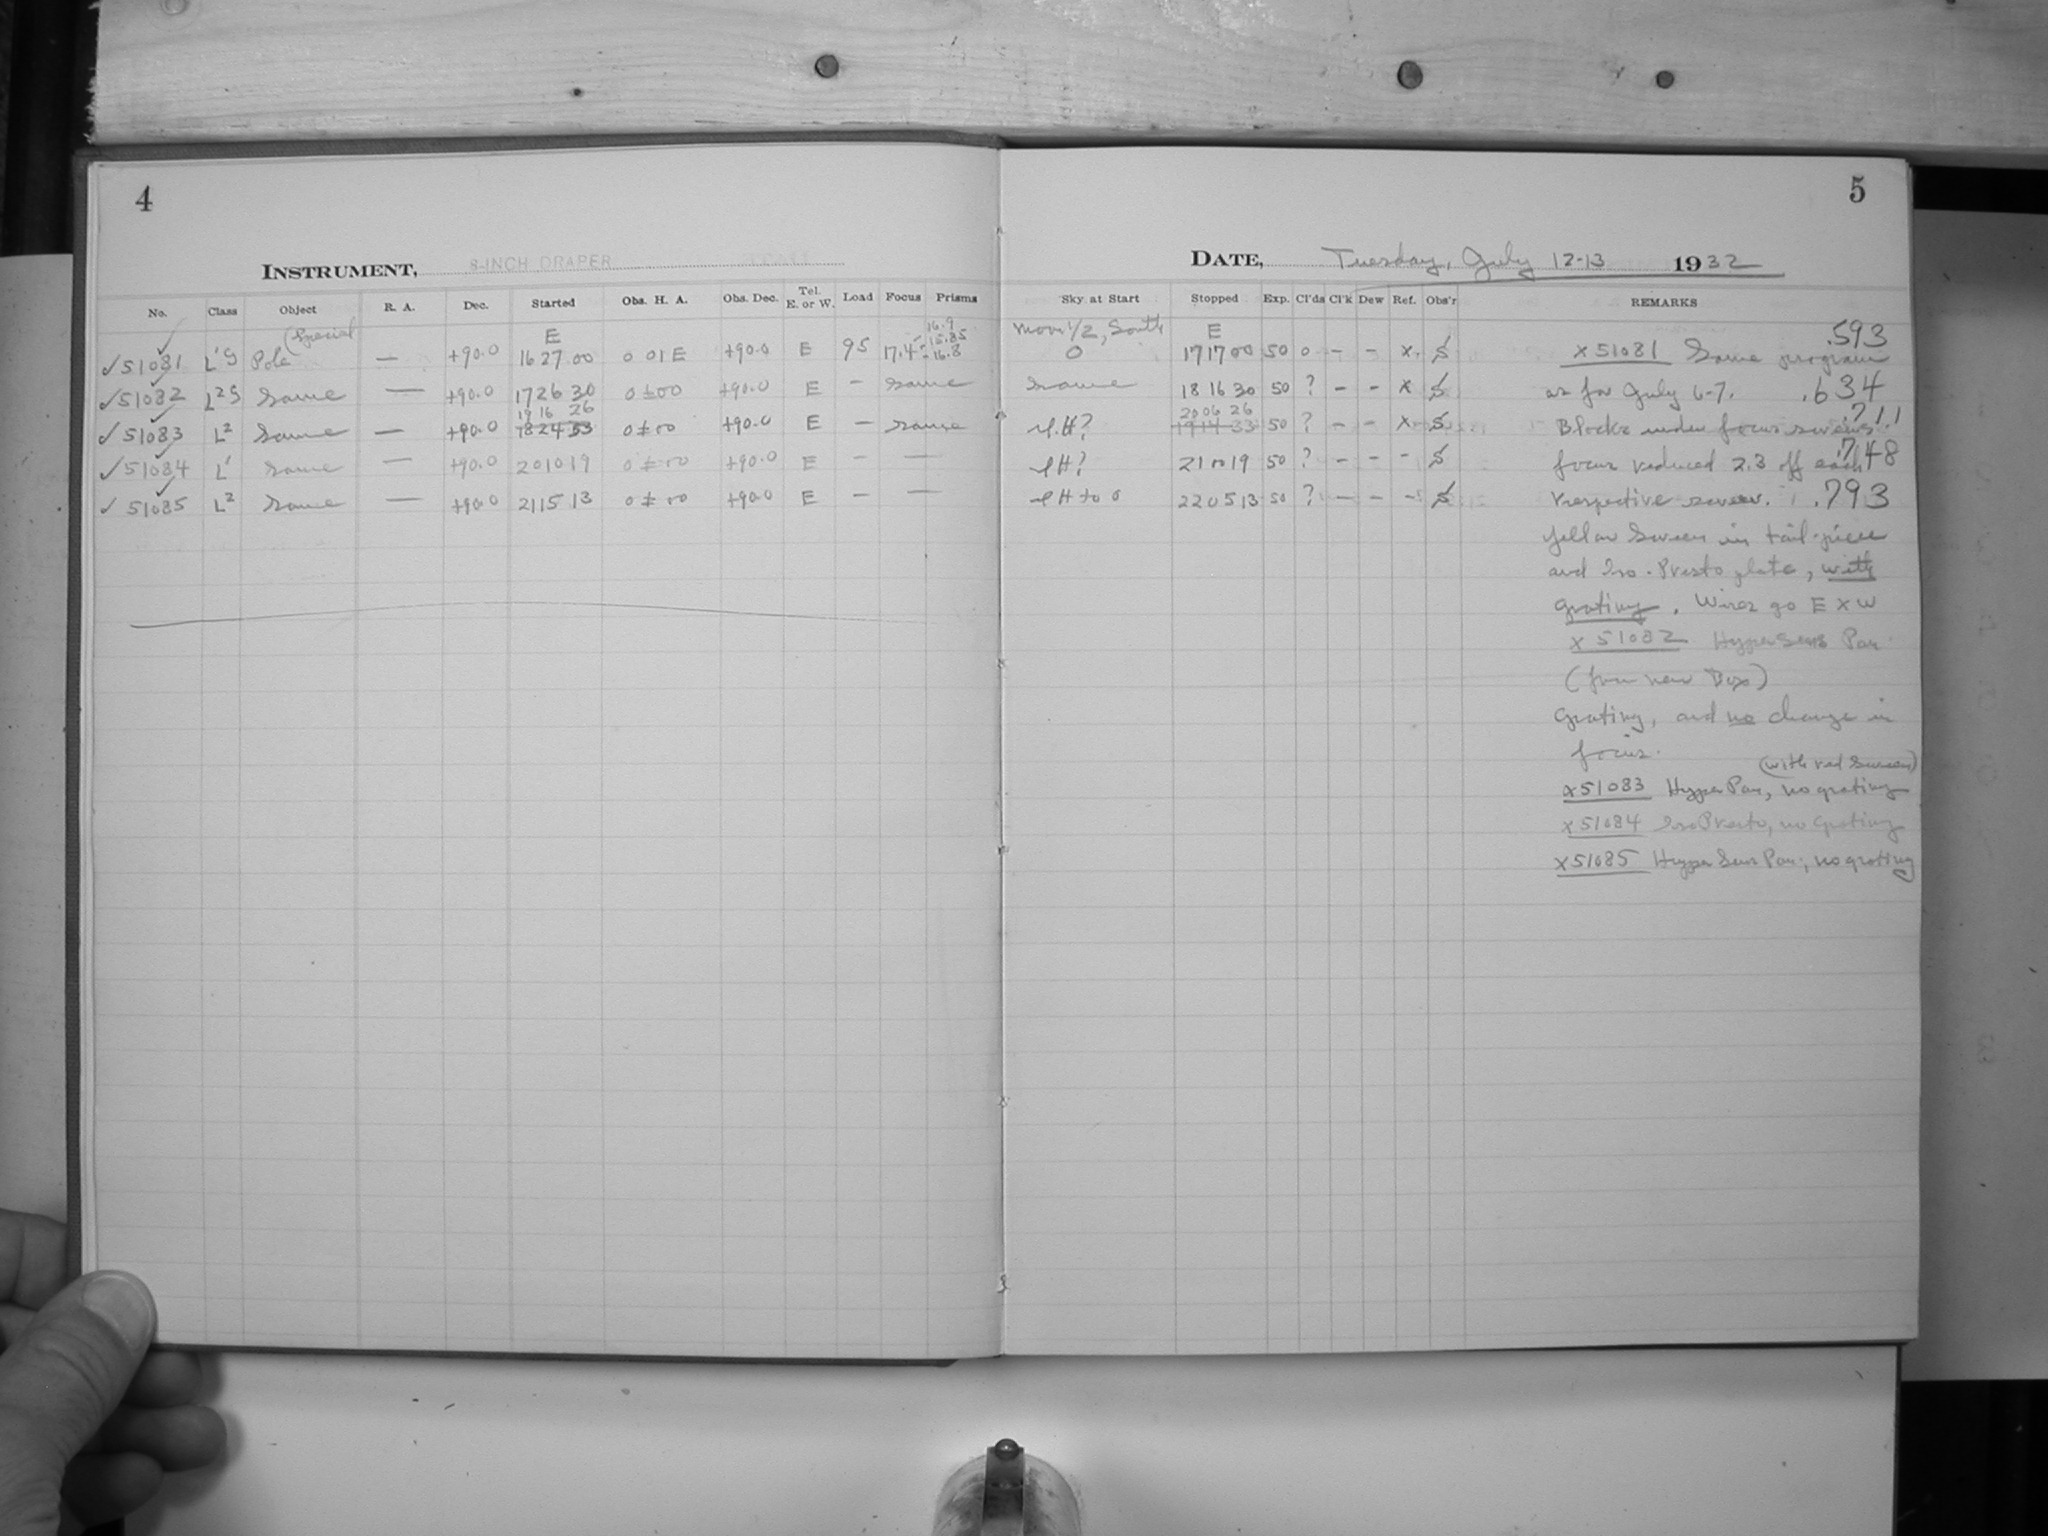 4
INSTRUMENT, 8-INCH DRAPER
No. Class Object R. A. Dec. Started Obs. H. A. Obs. Dec. Tel. E. or W. Load Focus Prisms
(Special E 16.9
✓51081 L'S Pole — +90.0 16 27 00 0 01 E +90.0 E 95 17.4 - 15.85 - 16.8
✓51082 L²S Same — +90.0 17 26 30 0 ± 00 +90.0 E — Same
19 16 26
✓51083 L² Same — +90.0 18 24 33 0 ± 00 +90.0 E — Same
✓51084 L' Same — +90.0 20 10 19 0 ± 00 +90.0 E — —
✓51085 L² Same — +90.0 21 15 13 0 ± 00 +90.0 E — —
5
DATE, Tuesday, July 12-13 1932
Sky at Start Stopped Exp. Cl'ds Cl'k Dew Ref. Obs'r REMARKS
Move 1/2, South E .593
0 17 17 00 50 0 — — x. S x 51081 Same program
Same 18 16 30 50 ? — — x S as for July 6-7. .634
20 06 26 .711
H? 19 14 33 50 ? — — x S Blocks under focus screws
H? 21 00 19 50 ? — — - S focus reduced 2.3 off each .748
H to 0 22 05 13 50 ? — — - S respective screw. .793
Yellow Screen in tail-piece
and Iso-Presto plate, with
grating. Wires go E x W
x 51082 HyperSens Pan
(from new Box)
Grating, and no change in
focus.
(with red Screen)
x51083 Hyper Pan, no grating
x51084 Iso Presto, no Grating
x51085 Hyper Sens Pan, no grating